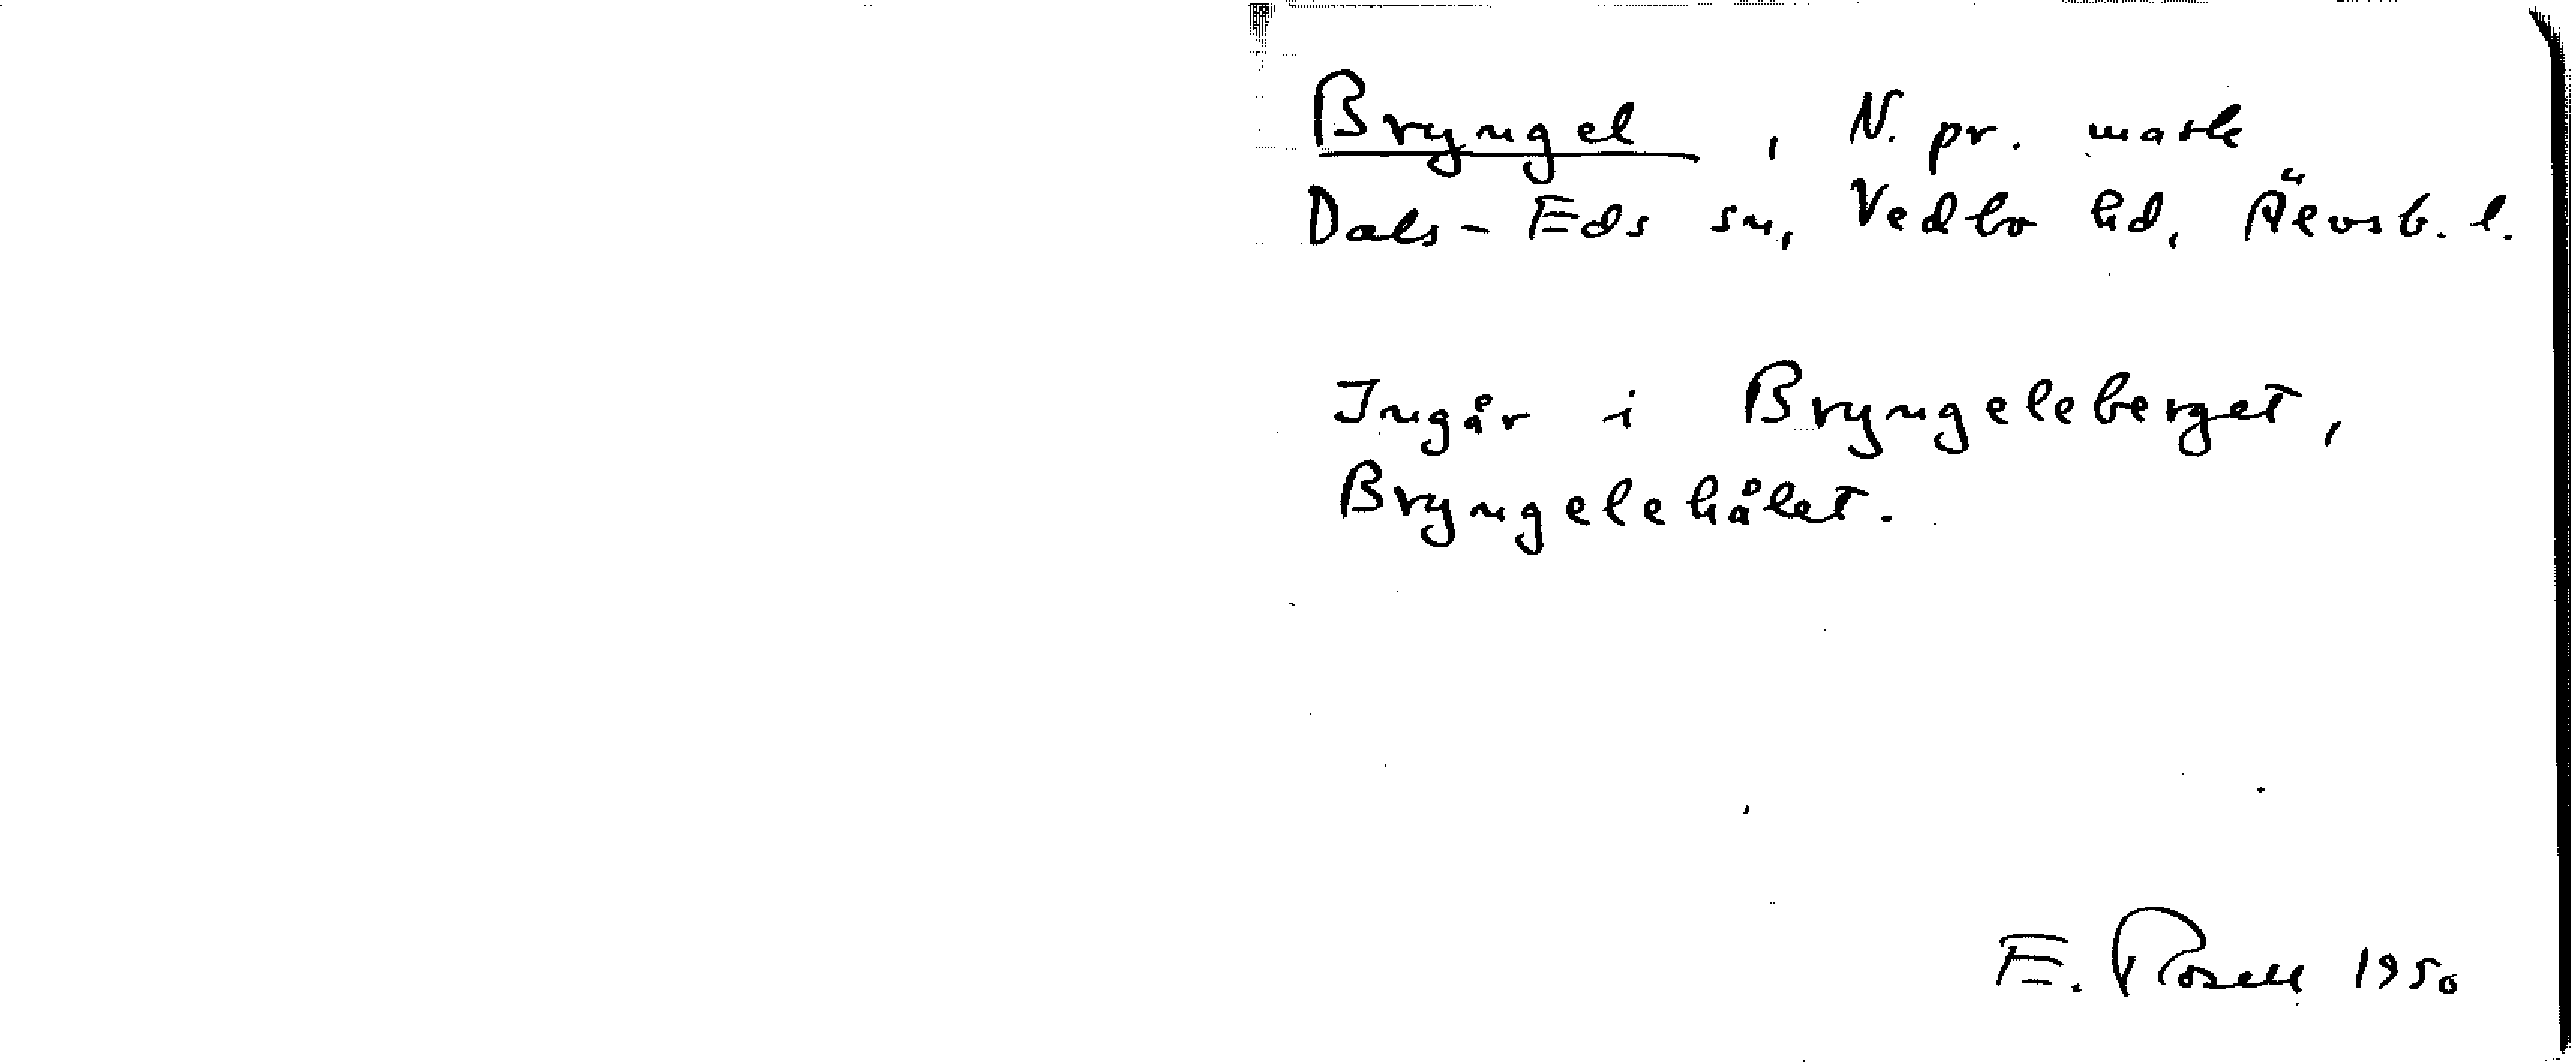 Bryngel, N. pr. mask
Dals-Eds sn, Vedbo hd, Älvsb. l.
Ingår i Bryngeleberget,
Bryngelehålet.
E. Rosell 1950